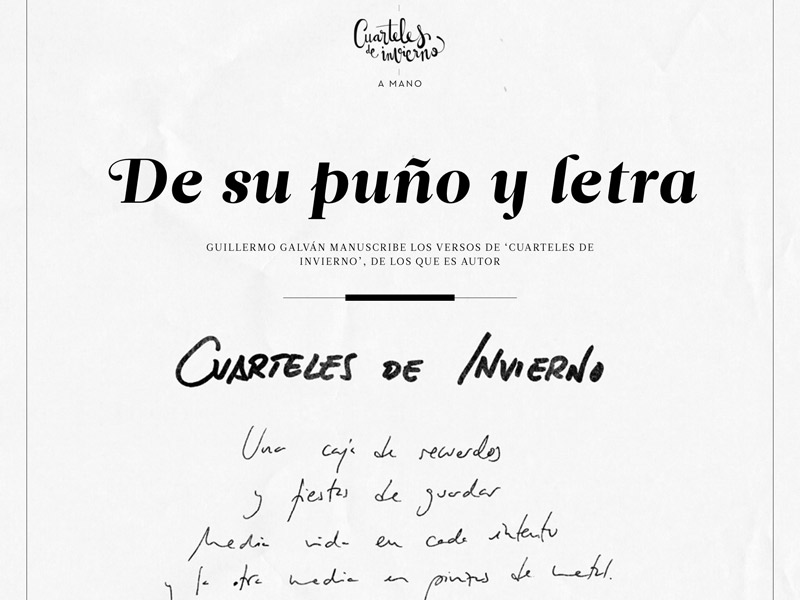 Cuarteles
de invierno
A MANO
De su puño y letra
GUILLERMO GALVÁN MANUSCRIBE LOS VERSOS DE ‘CUARTELES DE
INVIERNO’, DE LOS QUE ES AUTOR
CUARTELES DE INVIERNO
Una caja de recuerdos
y fiestas de guardar
Media vida en cada intento
y la otra media en pinzas de metal.